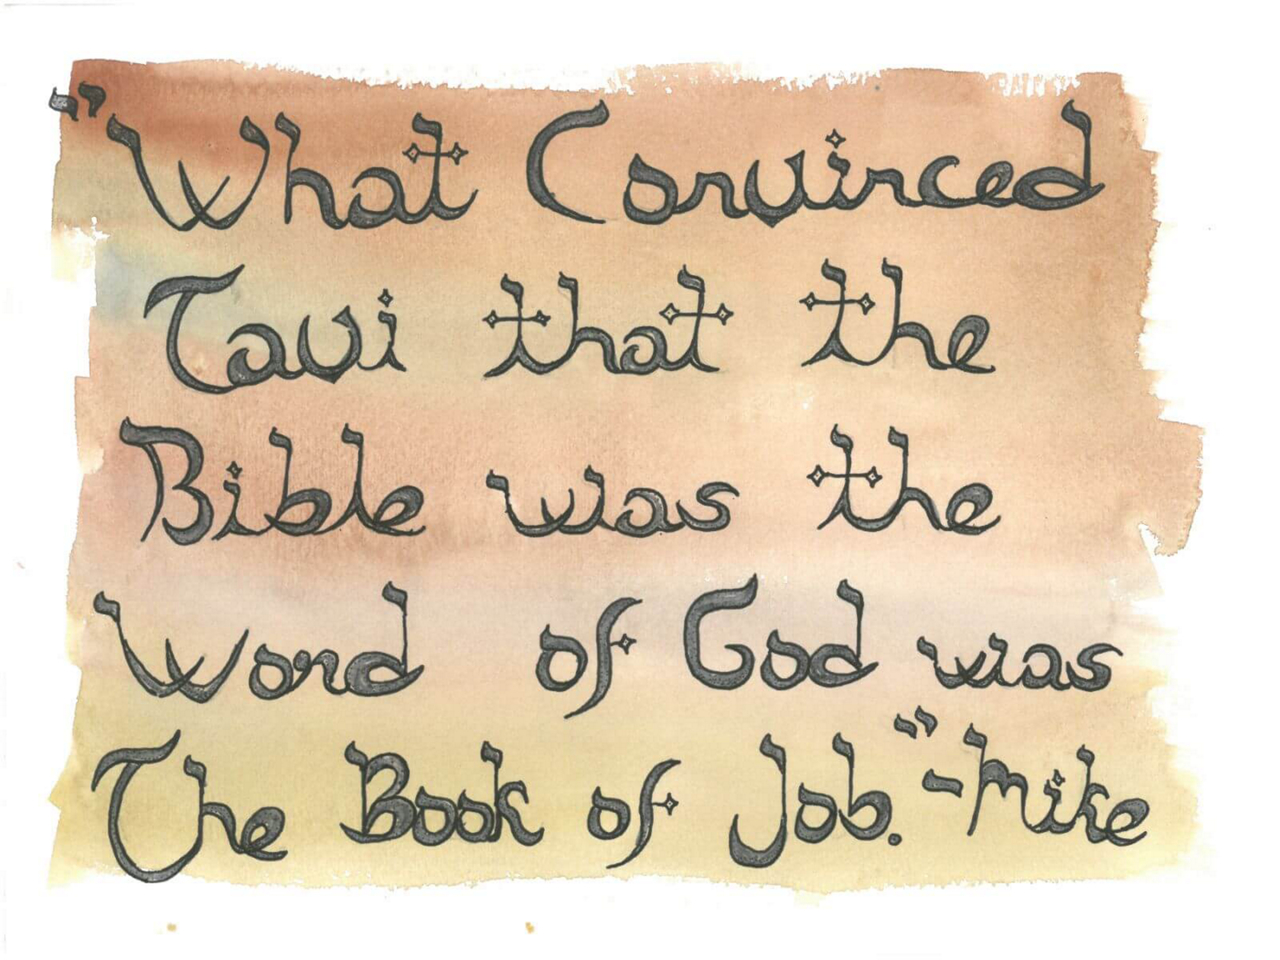 "What Convinced
Tavi that the
Bible was the
Word of God was
The Book of Job." -Mike